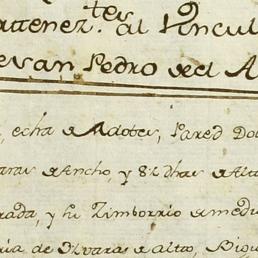 tenez.tes al Vincul
e San Pedro del A
echa de Adoves, Pared Do
varas de Ancho, y 8 Dhas de Alta
rada, y su Zimborrio de medi
ria de 2 varas de alto, Sigu